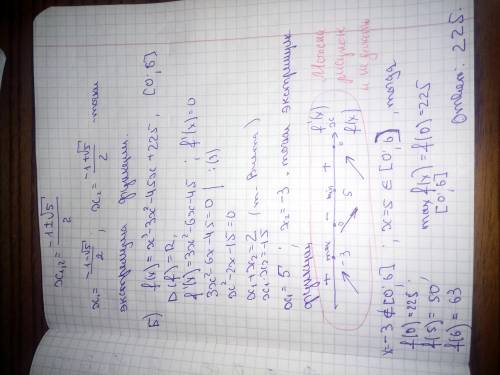 x₁,₂ = (-1±√5)/2
x₁ = (-1-√5)/2 ; x₂ = (-1+√5)/2 - точки
экстремума функции.
Б) f(x) = x³-3x²-45x+225, [0; 6]
D(f) = R,
f'(x) = 3x²-6x-45 ; f'(x)=0
3x²-6x-45=0 | :(3)
x²-2x-15=0
x₁+x₂=2
x₁·x₂=-15 (т-Виета)
x₁=5 ; x₂=-3, точки экстремум
функции
+ max - min + f'(x)
-3 5 x f(x)
Можно
рисунок
и не делать
x=-3 ∉ [0; 6] ; x=5 ∈ [0; 6], тогда
f(0)=225;
f(5)=50;
f(6)=63
max f(x) = f(0) = 225
[0; 6]
Ответ: 225.